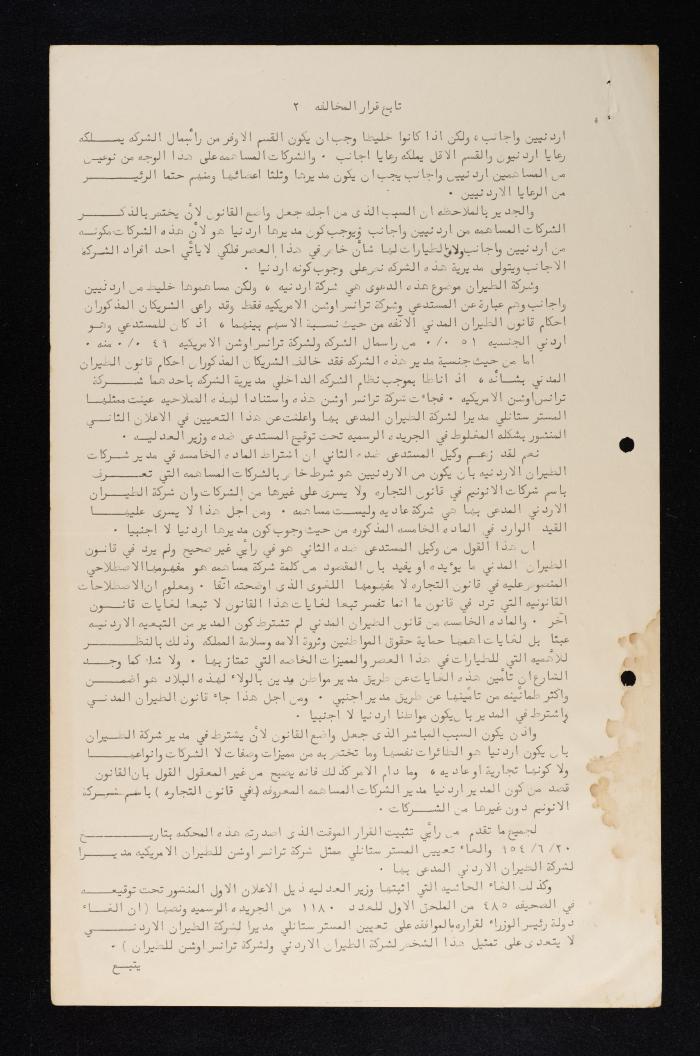 تابع قرار المخالفه ٢
اردنيين واجانب ، ولكن اذا كانوا خليطا وجب ان يكون القسم الاوفر من رأسمال الشركه يملكه
رعايا اردنيون والقسم الاقل يملكه رعايا اجانب . والشركات المساهمه على هذا الوجه من نوعين
من المساهمين اردنيين واجانب يجب ان يكون مديرها وثلثا اعضائها ومنهم حتما الرئيس
من الرعايا الاردنيين .
والجدير بالملاحظه ان السبب الذى من اجله جعل واضع القانون لأن يختص بالذكر
الشركات المساهمه من اردنيين واجانب ويوجب كون مديرها اردنيا هو لأن هذه الشركات مكونه
من اردنيين واجانب ولان للطيارات لها شأن خاص في هذا العصر فلكي لا يأتي احد افراد الشركه
الاجانب ويتولى مديرية هذه الشركه نص على وجوب كونه اردنيا .
وشركة الطيران موضوع هذه الدعوى هي شركة اردنيه ، ولكن مساهموها خليط من اردنيين
واجانب وهم عبارة عن المستدعي وشركة ترانس اوشن الامريكيه فقط وقد راعى الشريكان المذكوران
احكام قانون الطيران المدني الآنفه من حيث نسبة الاسهم بينهما ، اذ كان للمستدعي وهو
اردني الجنسيه ٥١ ٠/٠ من راسمال الشركه ولشركة ترانس اوشن الامريكيه ٤٩ ٠/٠ منه .
اما من حيث جنسية مدير هذه الشركه فقد خالف الشريكان المذكوران احكام قانون الطيران
المدني بشأنه ، اذ اناطا بموجب نظام الشركه الداخلي مديرية الشركه باحدهما شركة
ترانس اوشن الامريكيه . فجاءت شركة ترانس اوشن هذه واستنادا لهذه الصلاحيه عينت ممثلها
المستر ستانلي مديرا لشركة الطيران المدعى بها واعلنت عن هذا التعيين في الاعلان الثاني
المنشور بشكله المغلوط في الجريده الرسميه تحت توقيع المستدعى ضده وزير العدليه .
نعم لقد زعم وكيل المستدعى ضده الثاني ان اشتراط الماده الخامسه في مدير شركات
الطيران الاردنيه بان يكون من الاردنيين هو شرط خاص بالشركات المساهمه التي تعرف
باسم شركات الانونيم في قانون التجاره ولا يسرى على غيرها من الشركات وان شركة الطيران
الاردني المدعى بها هي شركة عاديه وليست مساهمه . ومن اجل هذا لا يسرى عليها
القيد الوارد في الماده الخامسه المذكوره من حيث وجوب كون مديرها اردنيا لا اجنبيا .
ان هذا القول من وكيل المستدعى ضده الثاني هو في رأيي غير صحيح ولم يرد في قانون
الطيران المدني ما يؤيده او يفيد بان المقصود من كلمة شركة مساهمه هو مفهومها الاصطلاحي
المنصوص عليه في قانون التجاره لا مفهومها اللغوى الذى اوضحته آنفا . ومعلوم ان الاصطلاحات
القانونيه التي ترد في قانون ما انما تفسر تبعا لغايات هذا القانون لا تبعا لغايات قانون
آخر . والماده الخامسه من قانون الطيران المدني لم تشترط كون المدير من التبعيه الاردنيه
عبثا بل لغايات اهمها حماية حقوق المواطنين وثروة الامه وسلامة المملكه وذلك بالنظر
للأهميه التي للطيارات في هذا العصر والمميزات الخاصه التي تمتاز بها . ولا شك كما وجد
الشارع ان تأمين هذه الغايات عن طريق مدير مواطن مدين بالولاء لهذه البلاد هو اضمن
واكثر طمأنينه من تأمينها عن طريق مدير اجنبي . ومن اجل هذا جاء قانون الطيران المدني
واشترط في المدير بان يكون مواطنا اردنيا لا اجنبيا .
واذن يكون السبب المباشر الذى جعل واضع القانون لأن يشترط في مدير شركة الطيران
بان يكون اردنيا هو الطائرات نفسها وما تختص به من مميزات وصفات لا الشركات وانواعها
ولا كونها تجارية او عاديه ، وما دام الامر كذلك فانه يصبح من غير المعقول القول بان القانون
قصد من كون المدير اردنيا مدير الشركات المساهمه المعروفه ( في قانون التجاره ) باسم شركة
الانونيم دون غيرها من الشركات .
لجميع ما تقدم من رأيي تثبيت القرار الموقت الذى اصدرته هذه المحكمه بتاريخ
٢٠/ ٦/ ١٥٤ والغاء تعيين المستر ستانلي ممثل شركة ترانس اوشن للطيران الامريكيه مديرا
لشركة الطيران الاردني المدعى بها .
وكذلك الغاء الحاشيه التي اثبتها وزير العدليه ذيل الاعلان الاول المنشور تحت توقيعه
في الصحيفه ٤٨٥ من الملحق الاول للعدد ١١٨٠ من الجريده الرسميه ونصها ( ان الغاء
دولة رئيس الوزراء لقراره بالموافقه على تعيين المستر ستانلي مديرا لشركة الطيران الاردني
لا يتعدى على تمثيل هذا الشخص لشركة الطيران الاردني ولشركة ترانس اوشن للطيران ) .
يتبع